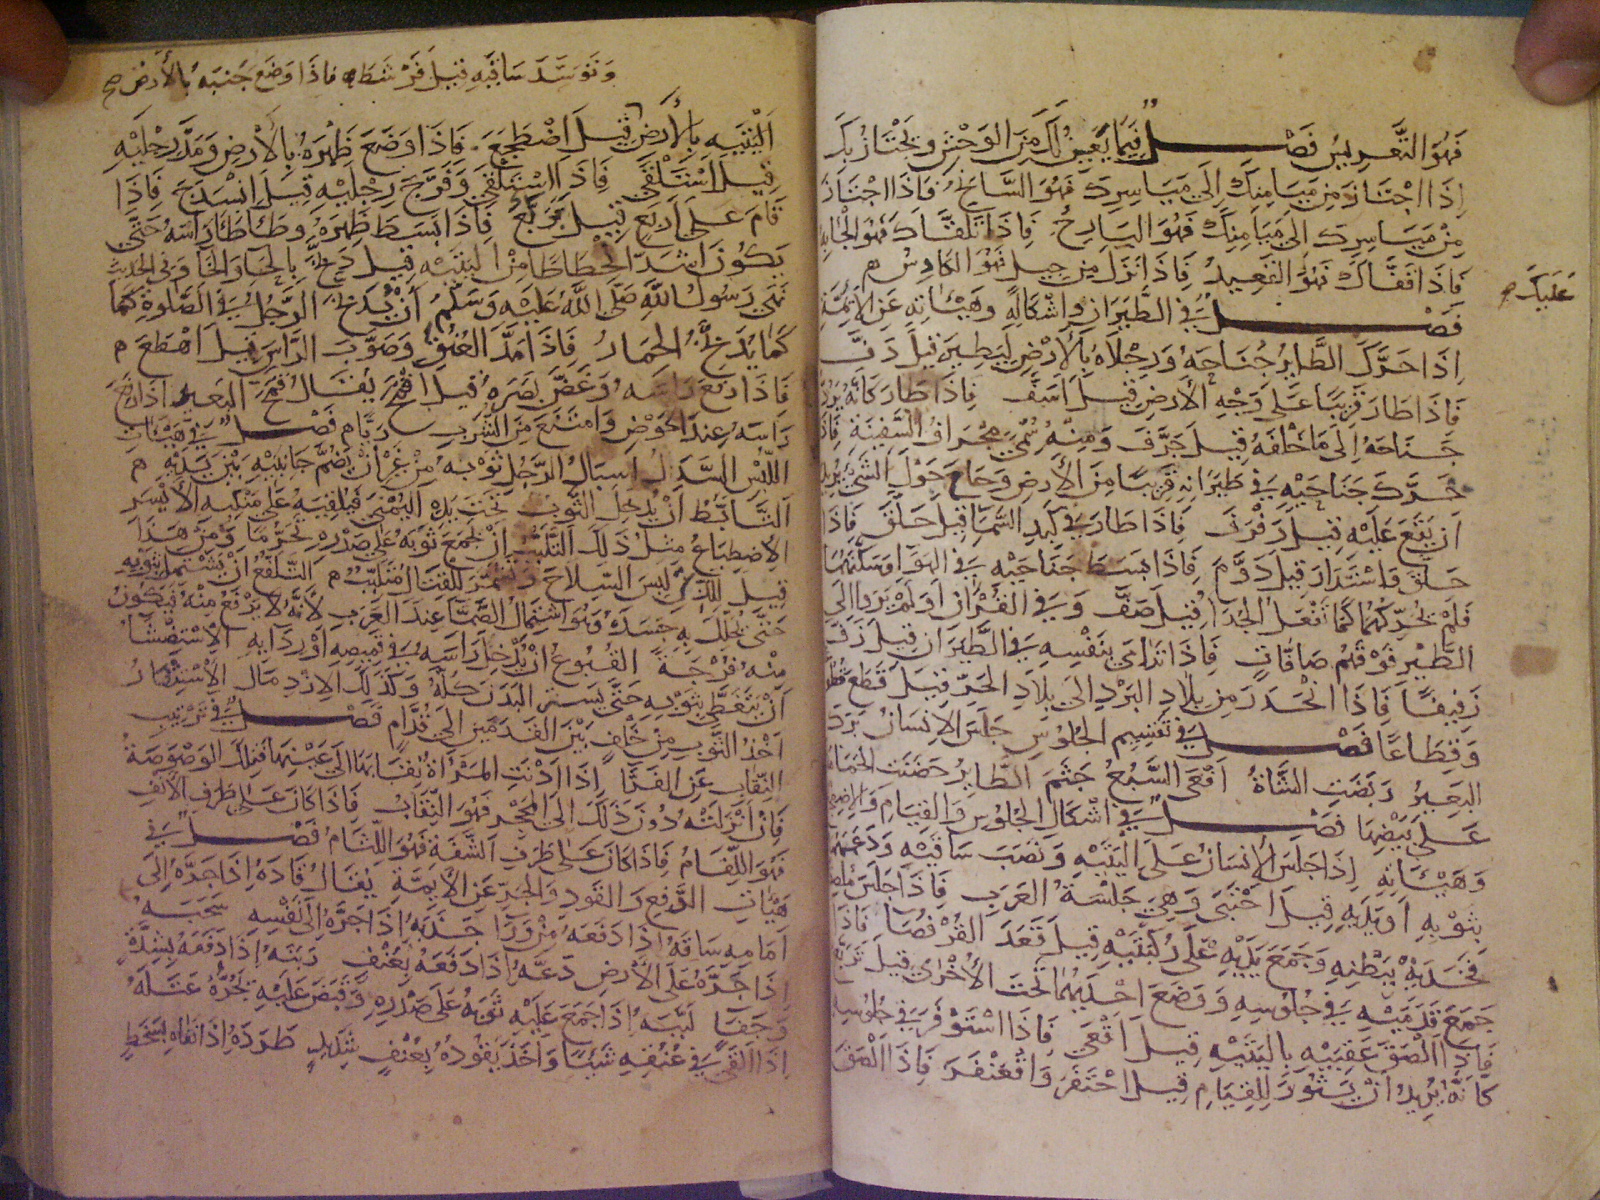 فَهُوَ التَّعْرِيسُ فَصْــلٌ فِيمَا يَعِنُّ لَكَ مِنَ الْوَحْشِ وَيَجْتَازُ بِكَ
إِذَا اجْتَازَ مِن مَيَامِنِكَ إِلَى مَيَاسِرِكَ فَهُوَ السَّانِحُ فَاذَا اجْتَازَ
مِنْ مَيَاسِرِكَ إِلَى مَيَامِنِكَ فَهُوَ الْبَارِحُ فَاذَا تَلَقَّاكَ فَهُوَ الْجَابِهُ
فَاذَا قَفَّاكَ فَهُوَ الْقَعِيدُ فَاذَا نَزَلَ مِن جَبَلٍ فَهُوَ الْكَادِسُ م
عَلَيْكَ صح
فَصْــلٌ فِي الطَّيَرَانِ وَاشْكَالِهِ وَهَيْئَاتِهِ عَنِ الْأَئِمَّةِ
إِذَا حَرَّكَ الطَّايِرُ جُنَاحَهُ وَرِجْلَاهُ بِالْأَرْضِ لِيَطِيرَ قِيلَ دَفَّ
فَاذَا طَارَ قَرِيبًا عَلَى وَجْهِ الْأَرْضِ قِيلَ أَسَفَّ فَاذَا طَارَ كَأَنَّهُ يَرُدُّ
جَنَاحَهُ إِلَى مَا خَلْفَهُ قِيلَ جَدَّفَ وَمِنْهُ سُمِّيَ مِجْدَافُ السَّفِينَةِ فَاذَا
حَرَّكَ جَنَاحَيْهِ فِي طَيَرَانِهِ قَرِيبًا مِنَ الْأَرْضِ وَحَامَ حَوْلَ الشَّيْءِ يُرِيدُ
اَن يَقَعَ عَلَيْهِ قِيلَ رَفْرَفَ فَاذَا طَارَ فِي كَبِدِ السَّمَاءِ قِيلَ حَلَّقَ فَاذَا
حَلَّقَ وَاسْتَدَارَ قِيلَ دَوَّمَ فَاذَا بَسَطَ جَنَاحَيْهِ فِي الْهَوَا وَسَكَّنَهُمَا
فَلَمْ يُحَرِّكْهُمَا كَمَا تَفْعَلُ الْحِدَأُ قِيلَ صَفَّ وَفِي الْقُرْآنِ أَوَلَمْ يَرَوْا إِلَى
الطَّيْرِ فَوْقَهُمْ صَافَّاتٍ فَاذَا تَرَامَى بِنَفْسِهِ فِي الطَّيَرَانِ قِيلَ زَفَّ
زَفِيفًا فَاذَا انْحَدَرَ مِن بِلَادِ الْبَرْدِ إِلَى بِلَادِ الْحَرِّ قِيلَ قَطَعَ قُطُوعًا
وَقِطَاعًا فَصْــلٌ فِي تَقْسِيمِ الْجُلُوسِ جَلَسَ الْإِنْسَانُ بَرَكَ
الْبَعِيرُ رَبَضَتِ الشَّاةُ أَقْعَى السَّبُعُ جَثَمَ الطَّايِرُ حَضَنَتِ الْحَمَامَةُ
عَلَى بَيْضِهَا فَصْــلٌ فِي اَشْكَالِ الْجُلُوسِ وَالْقِيَامِ وَالْاِضْطِجَاعِ
وَهَيْئَاتِهِ إِذَا جَلَسَ الْإِنْسَانُ عَلَى أَلْيَتَيْهِ وَنَصَبَ سَاقَيْهِ وَدَعَمَهُمَا
بِثَوْبِهِ أَوْ يَدَيْهِ قِيلَ احْتَبَى وَهِيَ جَلْسَةُ الْعَرَبِ فَاذَا جَلَسَ مُلْصِقًا
فَخِذَيْهِ بِبَطْنِهِ وَجَمَعَ يَدَيْهِ عَلَى رُكْبَتَيْهِ قِيلَ قَعَدَ الْقُرْفُصَا فَاذَا
جَمَعَ قَدَمَيْهِ فِي جُلُوسِهِ وَوَضَعَ اِحْدَيهُمَا تَحْتَ الْأُخْرَى قِيلَ تَرَبَّعَ
فَاذَا اَلْصَقَ عَقِبَيْهِ بِأَلْيَتَيْهِ قِيلَ أَقْعَى فَاذَا اسْتَوْفَزَ فِي جُلُوسِهِ
كَأَنَّهُ يُرِيدُ أَنْ يَثُورَ لِلْقِيَامِ قِيلَ احْتَفَزَ وَاقْعَنْفَزَ فَاذَا اَلْصَقَ
وَتَوَسَّدَ سَاقَيْهِ قِيلَ فَرْشَطَ فَاذَا وَضَعَ جَنْبَهُ بِالْأَرْضِ صح
اَلْيَتَيْهِ بِالْأَرْضِ قِيلَ اضْطَجَعَ فَاذَا وَضَعَ ظَهْرَهُ بِالْأَرْضِ وَمَدَّ رِجْلَيْهِ
قِيلَ اسْتَلْقَى فَاذَا اسْتَلْقَى وَفَرَّجَ رِجْلَيْهِ قِيلَ انْسَدَحَ فَاذَا
قَامَ عَلَى أَرْبَعٍ قِيلَ بَرْكَعَ فَاذَا بَسَطَ ظَهْرَهُ وَطَأْطَأَ رَأْسَهُ حَتَّى
يَكُونَ أَشَدَّ انْحِطَاطًا مِنْ أَلْيَتَيْهِ قِيلَ دَبَّحَ بِالْحَاءِ وَالْخَاءِ وَفِي الْحَدِيثِ
نَهَى رَسُولُ اللَّهِ صَلَّى اللَّهُ عَلَيْهِ وَسَلَّمَ أَنْ يُدَبِّحَ الرَّجُلُ فِي الصَّلَوةِ كَمَا
كَمَا يُدَبِّحُ الْحِمَارُ فَاذَا مَدَّ الْعُنُقَ وَصَوَّبَ الرَّأْسَ قِيلَ أَهْطَعَ م
فَاذَا رَفَعَ رَاسَهُ وَغَضَّ بَصَرَهُ قِيلَ أَقْمَحَ يُقَالُ قَمَحَ الْبَعِيرُ اذَا رَفَعَ
رَاسَهُ عِنْدَ الْحَوْضِ وَامْتَنَعَ مِنَ الشُّرْبِ رِيًّا م فَصْــلٌ فِي هَيْئَاتِ
اللُّبْسِ السَّدْلُ اِسْبَالُ الرَّجُلِ ثَوْبَهُ مِنْ غَيْرِ أَنْ يَضُمَّ جَانِبَيْهِ بَيْنَ يَدَيْهِ م
التَّأَبُّطُ أَنْ يُدْخِلَ الثَّوْبَ تَحْتَ يَدِهِ الْيُمْنَى فَيُلْقِيَهُ عَلَى مَنْكِبِهِ الْأَيْسَرِ
الْاِضْطِبَاعُ مِثْلُ ذَلِكَ التَّلَبُّبُ أَنْ يَجْمَعَ ثَوْبَهُ عَلَى صَدْرِهِ تَحَزُّمًا وَمِنْ هَذَا
قِيلَ لِلَّذِي لَبِسَ السِّلَاحَ وَتَشَمَّرَ لِلْقِتَالِ مُتَلَبِّبٌ م التَّلَفُّعُ أَنْ يَشْتَمِلَ بِثَوْبِهِ
حَتَّى يُجَلِّلَ بِهِ جَسَدَهُ وَهُوَ اشْتِمَالُ الصَّمَّاءِ عِنْدَ الْعَرَبِ لِأَنَّهُ لَا يَرْفَعُ مِنْهُ فَيَكُونُ
مِنْهُ فُرْجَةٌ الْقُبُوعُ أَنْ يُدْخِلَ رَاسَهُ فِي قَمِيصِهِ أَوْ رِدَايِهِ الْاِسْتِغْشَاءُ
أَنْ يَتَغَطَّى بِثَوْبِهِ حَتَّى يَسْتُرَ الْبَدَنَ كُلَّهُ وَكَذَلِكَ الِازْدِمَالُ الْاِسْتِثْفَارُ
أَخْذُ الثَّوْبِ مِنْ خَلْفٍ بَيْنَ الْقَدَمَيْنِ إِلَى قُدَّامٍ فَصْــلٌ فِي تَرْتِيبِ
النِّقَابِ عَنِ الْفَرَّاءِ إِذَا اَدْنَتِ الْمَرْأَةُ نِقَابَهَا إِلَى عَيْنَيْهَا فَتِلْكَ الْوَصْوَصَةُ
فَإِنْ أَنْزَلَتْهُ دُونَ ذَلِكَ إِلَى الْمَحْجِرِ فَهُوَ النِّقَابُ فَاذَا كَانَ عَلَى طَرَفِ الْأَنْفِ
فَهُوَ اللِّفَامُ فَاذَا كَانَ عَلَى طَرَفِ الشَّفَةِ فَهُوَ اللِّثَامُ فَصْــلٌ فِي
هَيْئَاتِ الدَّفْعِ وَالْقَوْدِ وَالْجَرِّ عَنِ الْأَئِمَّةِ يُقَالُ قَادَهُ إِذَا جَرَّهُ إِلَى
أَمَامِهِ سَاقَهُ إِذَا دَفَعَهُ مِنْ وَرَا جَذَبَهُ إِذَا جَرَّهُ إِلَى نَفْسِهِ سَحَبَهُ
إِذَا جَرَّهُ عَلَى الْأَرْضِ دَعَّهُ إِذَا دَفَعَهُ بِعُنْفٍ زَبَنَهُ إِذَا دَفَعَهُ بِشِدَّةٍ
وَجَفَاءٍ لَبَّبَهُ إِذَا جَمَعَ عَلَيْهِ ثَوْبَهُ عَلَى صَدْرِهِ وَقَبَضَ عَلَيْهِ يَجُرُّهُ عَتَلَهُ
إِذَا أَلْقَى فِي عُنُقِهِ شَيْئًا وَأَخَذَ يَقُودُهُ بِعُنْفٍ شَدِيدٍ طَرَدَهُ إِذَا نَفَاهُ بِسَخَطٍ